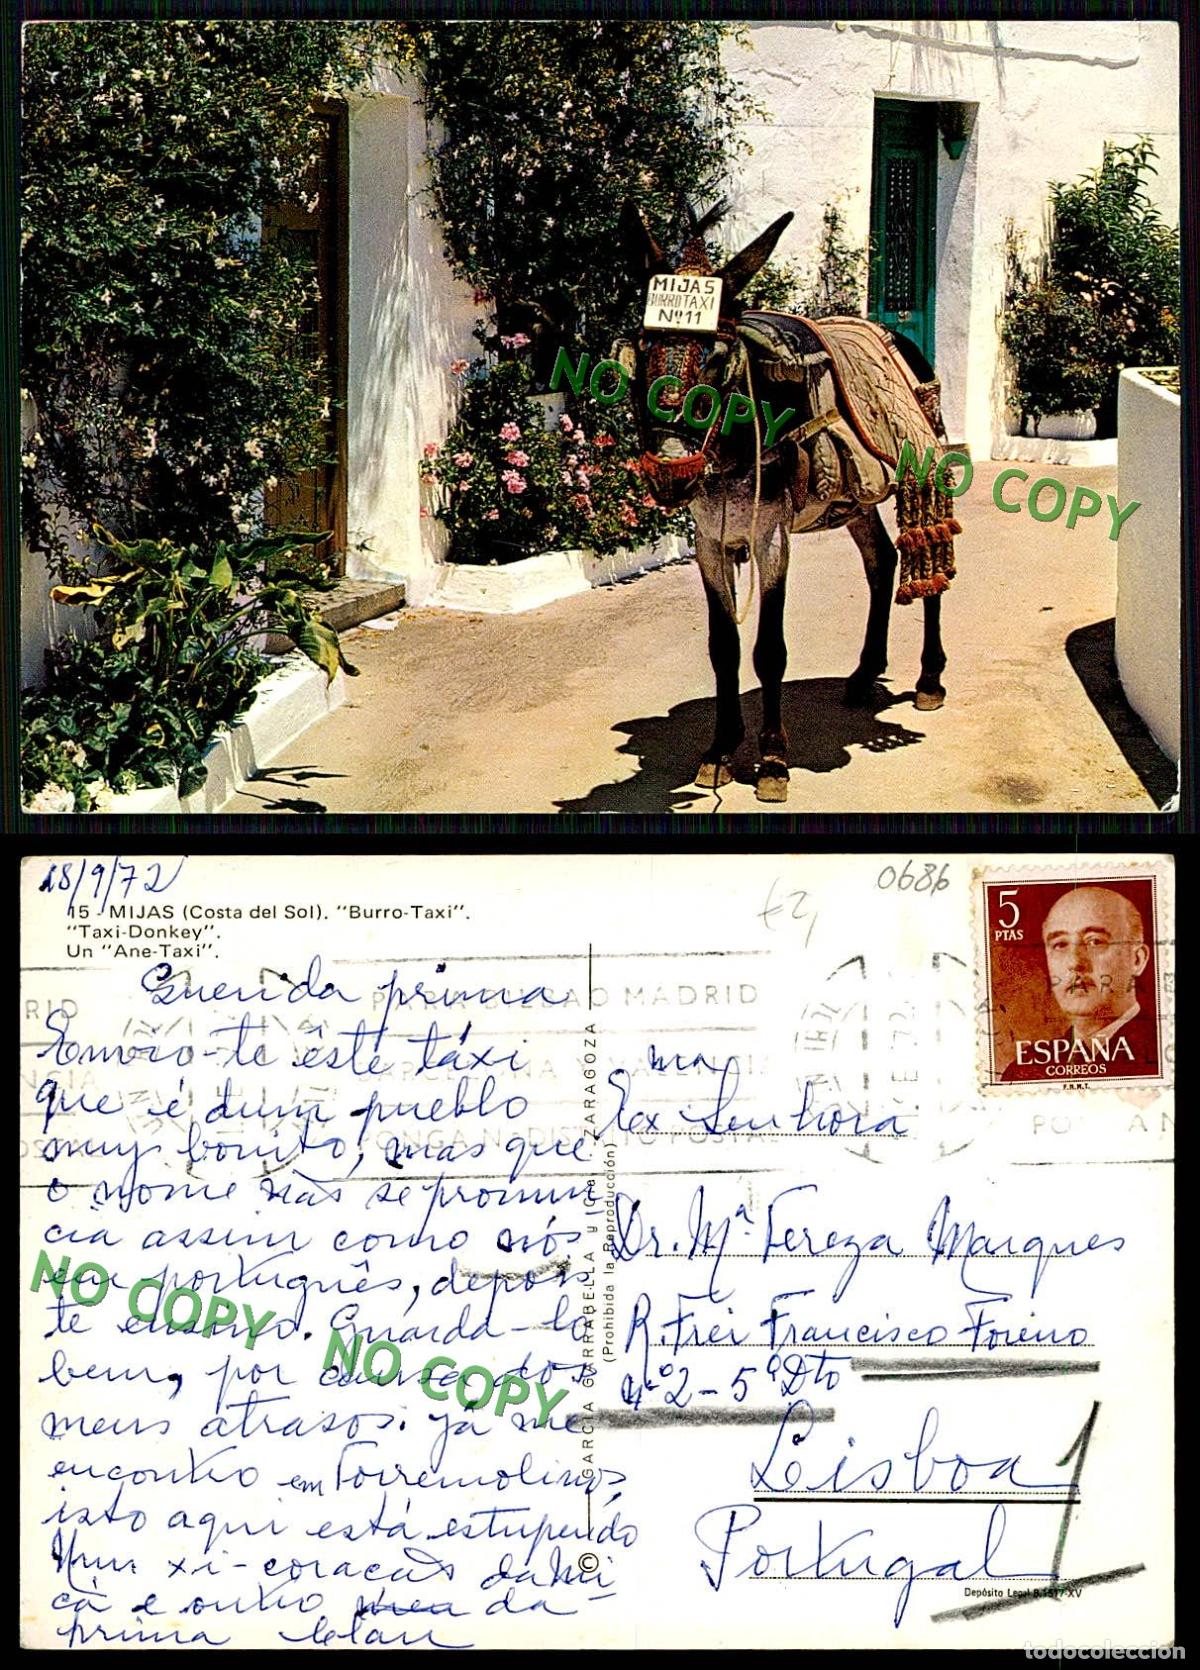 MIJAS
BURRO TAXI
Nº 11
NO COPY
NO COPY
18/9/72
0686
15 - MIJAS (Costa del Sol). "Burro-Taxi".
"Taxi-Donkey".
Un "Ane-Taxi".
5
PTAS
ESPAÑA
CORREOS
F.N.M.T.
PARA BILBAO MADRID
BARCELONA VALENCIA
PONGA Nº DISTRITO POSTAL
Querida prima
Envio-te êste táxi
que é dum pueblo
muy bonito, mas que
o nome não se pronun
cia assim como nós
em português, depois
te ensino. Guarda-lo
bem, por causa dos
meus atrasos. Já me
encontro em Torremolinos,
isto aqui está estupendo
Num xi-coração da Mi-
cá e outro da
prima
Ex ma Senhora
Dr. Mª Tereza Marques
R. Frei Francisco Foreiro
nº 2 - 5º Dto
Lisboa
Portugal
1
© GARCIA GARRABELLA y Cia. - ZARAGOZA
(Prohibida la Reproducción)
Depósito Legal B. 1517-XV
NO COPY
NO COPY
todocoleccion